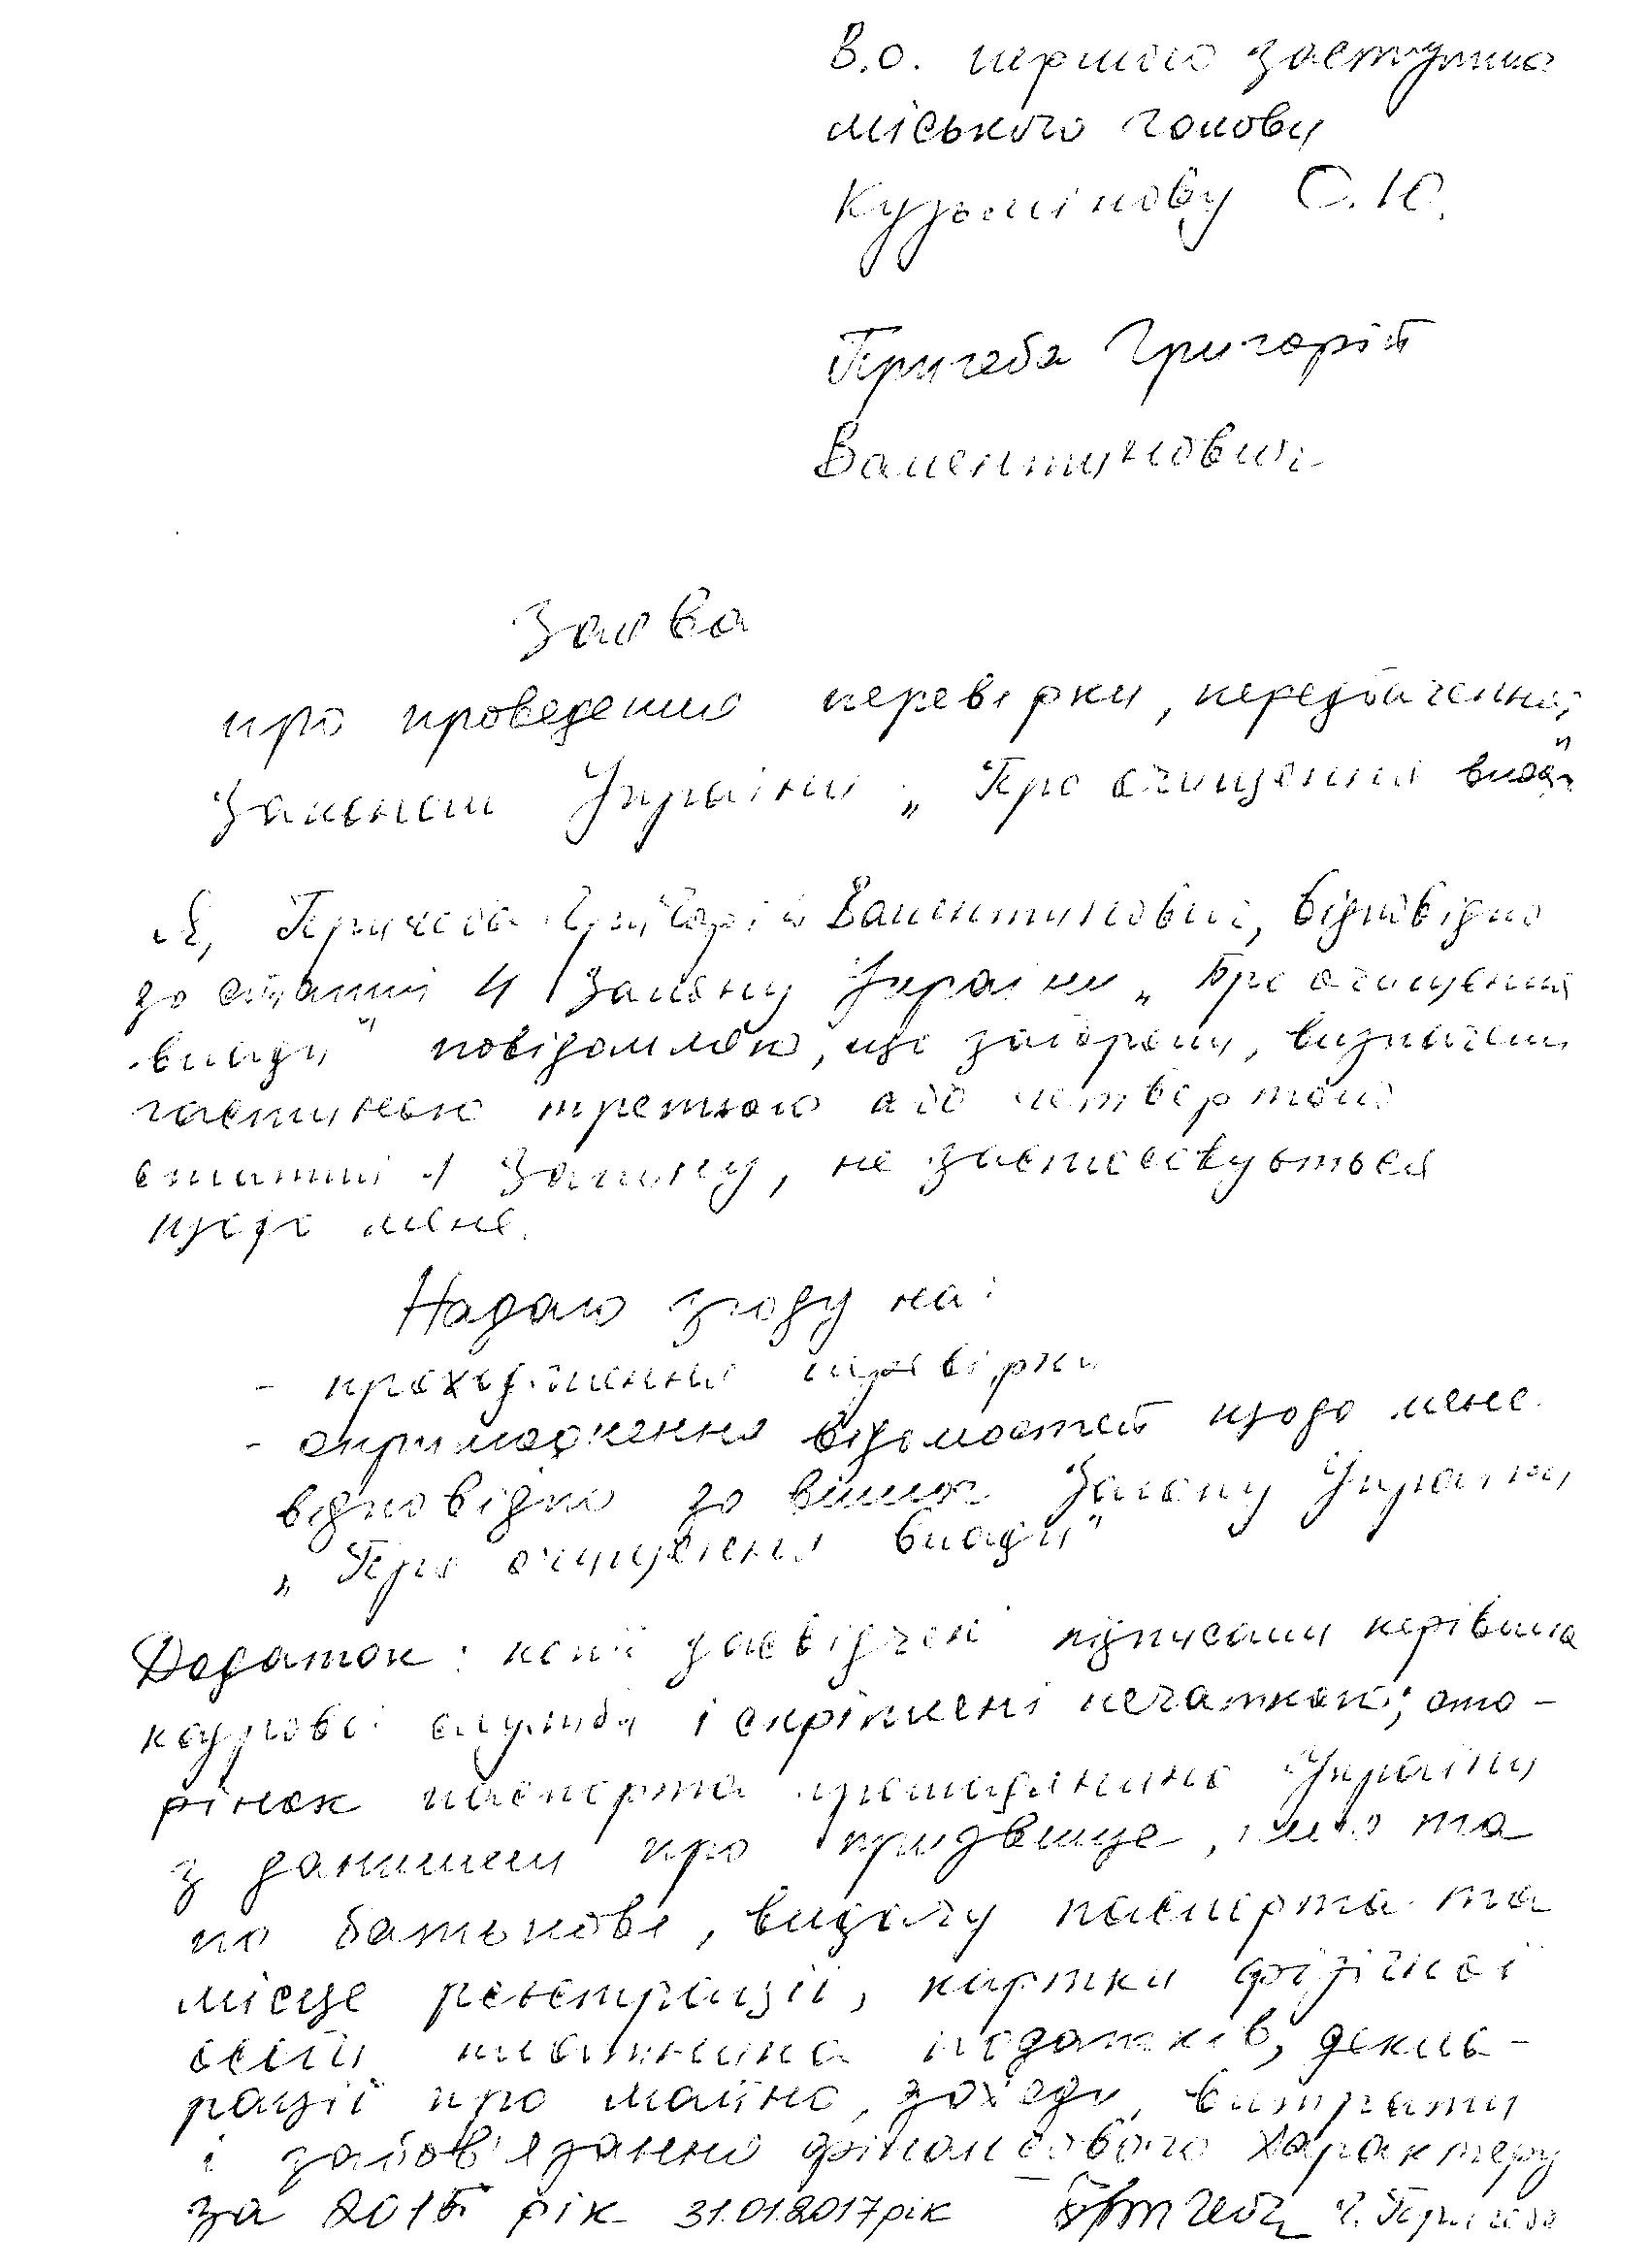 В.о. першого заступника
міського голови
Кузьмінову С.Ю.
Пригеба Григорій
Валентинович
Заява
про проведення перевірки, передбаченої
Законом України „Про очищення влади"
Я, Пригеба Григорій Валентинович, відповідно
до статті 4 Закону України „Про очищення
влади" повідомляю, що заборони, визначені
частиною третьою або четвертою
статті 1 Закону, не застосовуються
щодо мене.
Надаю згоду на:
- проходження перевірки
- оприлюднення відомостей щодо мене
відповідно до вимог Закону України
„Про очищення влади"
Додаток: копії засвідчені підписами керівника
кадрової служби і скріплені печаткою; сто-
рінок паспорта громадянина України
з даними про прізвище, ім'я та
по батькові, видачу паспорта та
місце реєстрації, картки фізичної
особи платника податків, декла-
рації про майно, доходи, витрати
і зобов'язання фінансового характеру
за 2015 рік 31.01.2017 рік Г. Пригеба